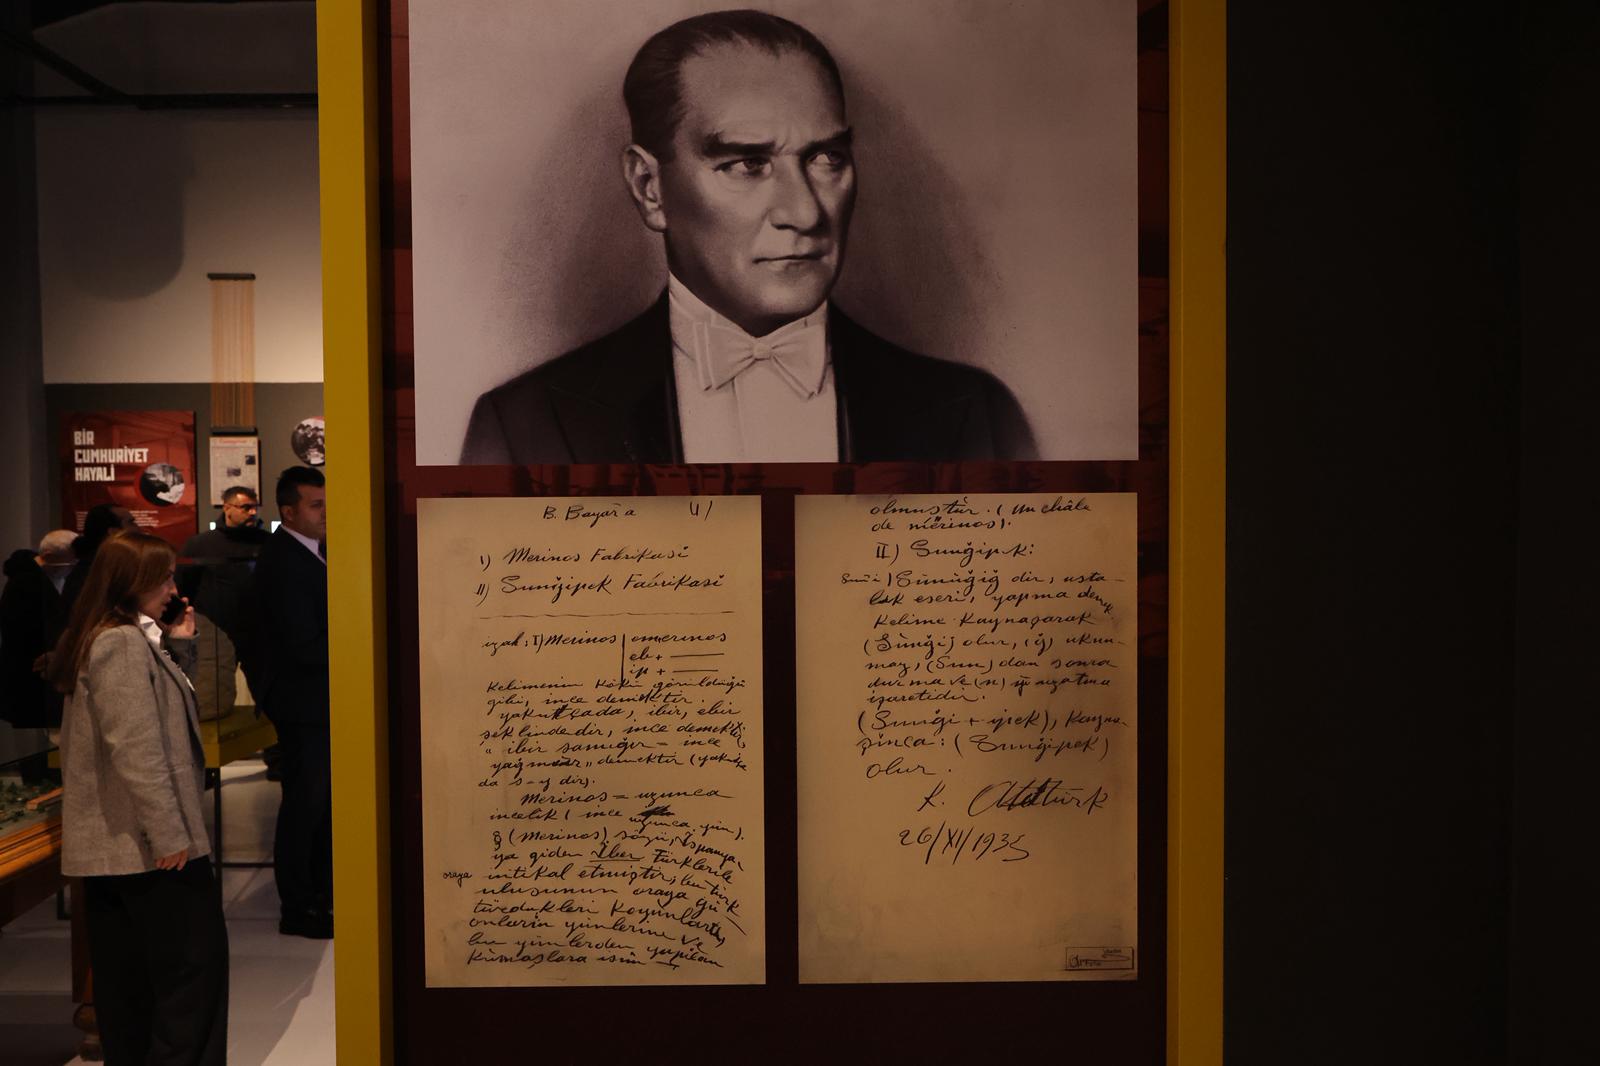 BİR
CUMHURİYET
HAYALİ
B. Bayar'a 4/
I) Merinos Fabrikasi
II) Sunğipek Fabrikasi
izah: I) Merinos | omerinos
eb +
ip +
Kelimenin kökü görüldüğü
gibi, ince demektir.
yakutçada, ibir, ebir
şeklindedir, ince demektir,
" ibir samığır = ince
yağmur" demektir (yakutça
da s=y dir).
Merinos = uzunca
incelik (ince uzunca yün).
§ (Merinos) sözü, İspanya-
ya giden İber Türklerile
oraya intikal etmiştir; bu türk
ulusunun oraya gö
türdükleri koyunlarla,
onların yünlerine ve
bu yünlerden yapılan
kumaşlara isim
olmuştur. (un châle
de mérinos).
II) Sunğipek:
Suni) Sünüğiğ dir, usta-
lık eseri, yapma demek
Kelime kaynaşarak
(Sünği) olur, (ğ) okun-
maz, (Sun) dan sonra
durma ve (n) uzatma
işaretidir.
(Sunği + ipek), kayna-
şınca: (Sunğipek)
olur.
K. Atatürk
26/XI/1935